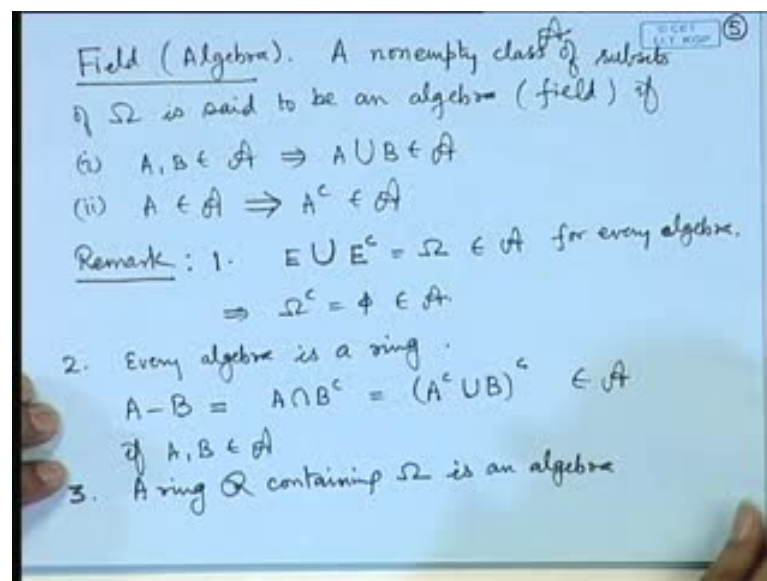 © CET
I.I.T. KGP
⑤
Field (Algebra). A nonempty class 𝒜 of subsets
of Ω is said to be an algebra (field) if
(i) A, B ∈ 𝒜 ⇒ A ∪ B ∈ 𝒜
(ii) A ∈ 𝒜 ⇒ Aᶜ ∈ 𝒜
Remark : 1. E ∪ Eᶜ = Ω ∈ 𝒜 for every algebra.
⇒ Ωᶜ = ϕ ∈ 𝒜.
2. Every algebra is a ring.
A − B = A ∩ Bᶜ = (Aᶜ ∪ B)ᶜ ∈ 𝒜
if A, B ∈ 𝒜
3. A ring R containing Ω is an algebra